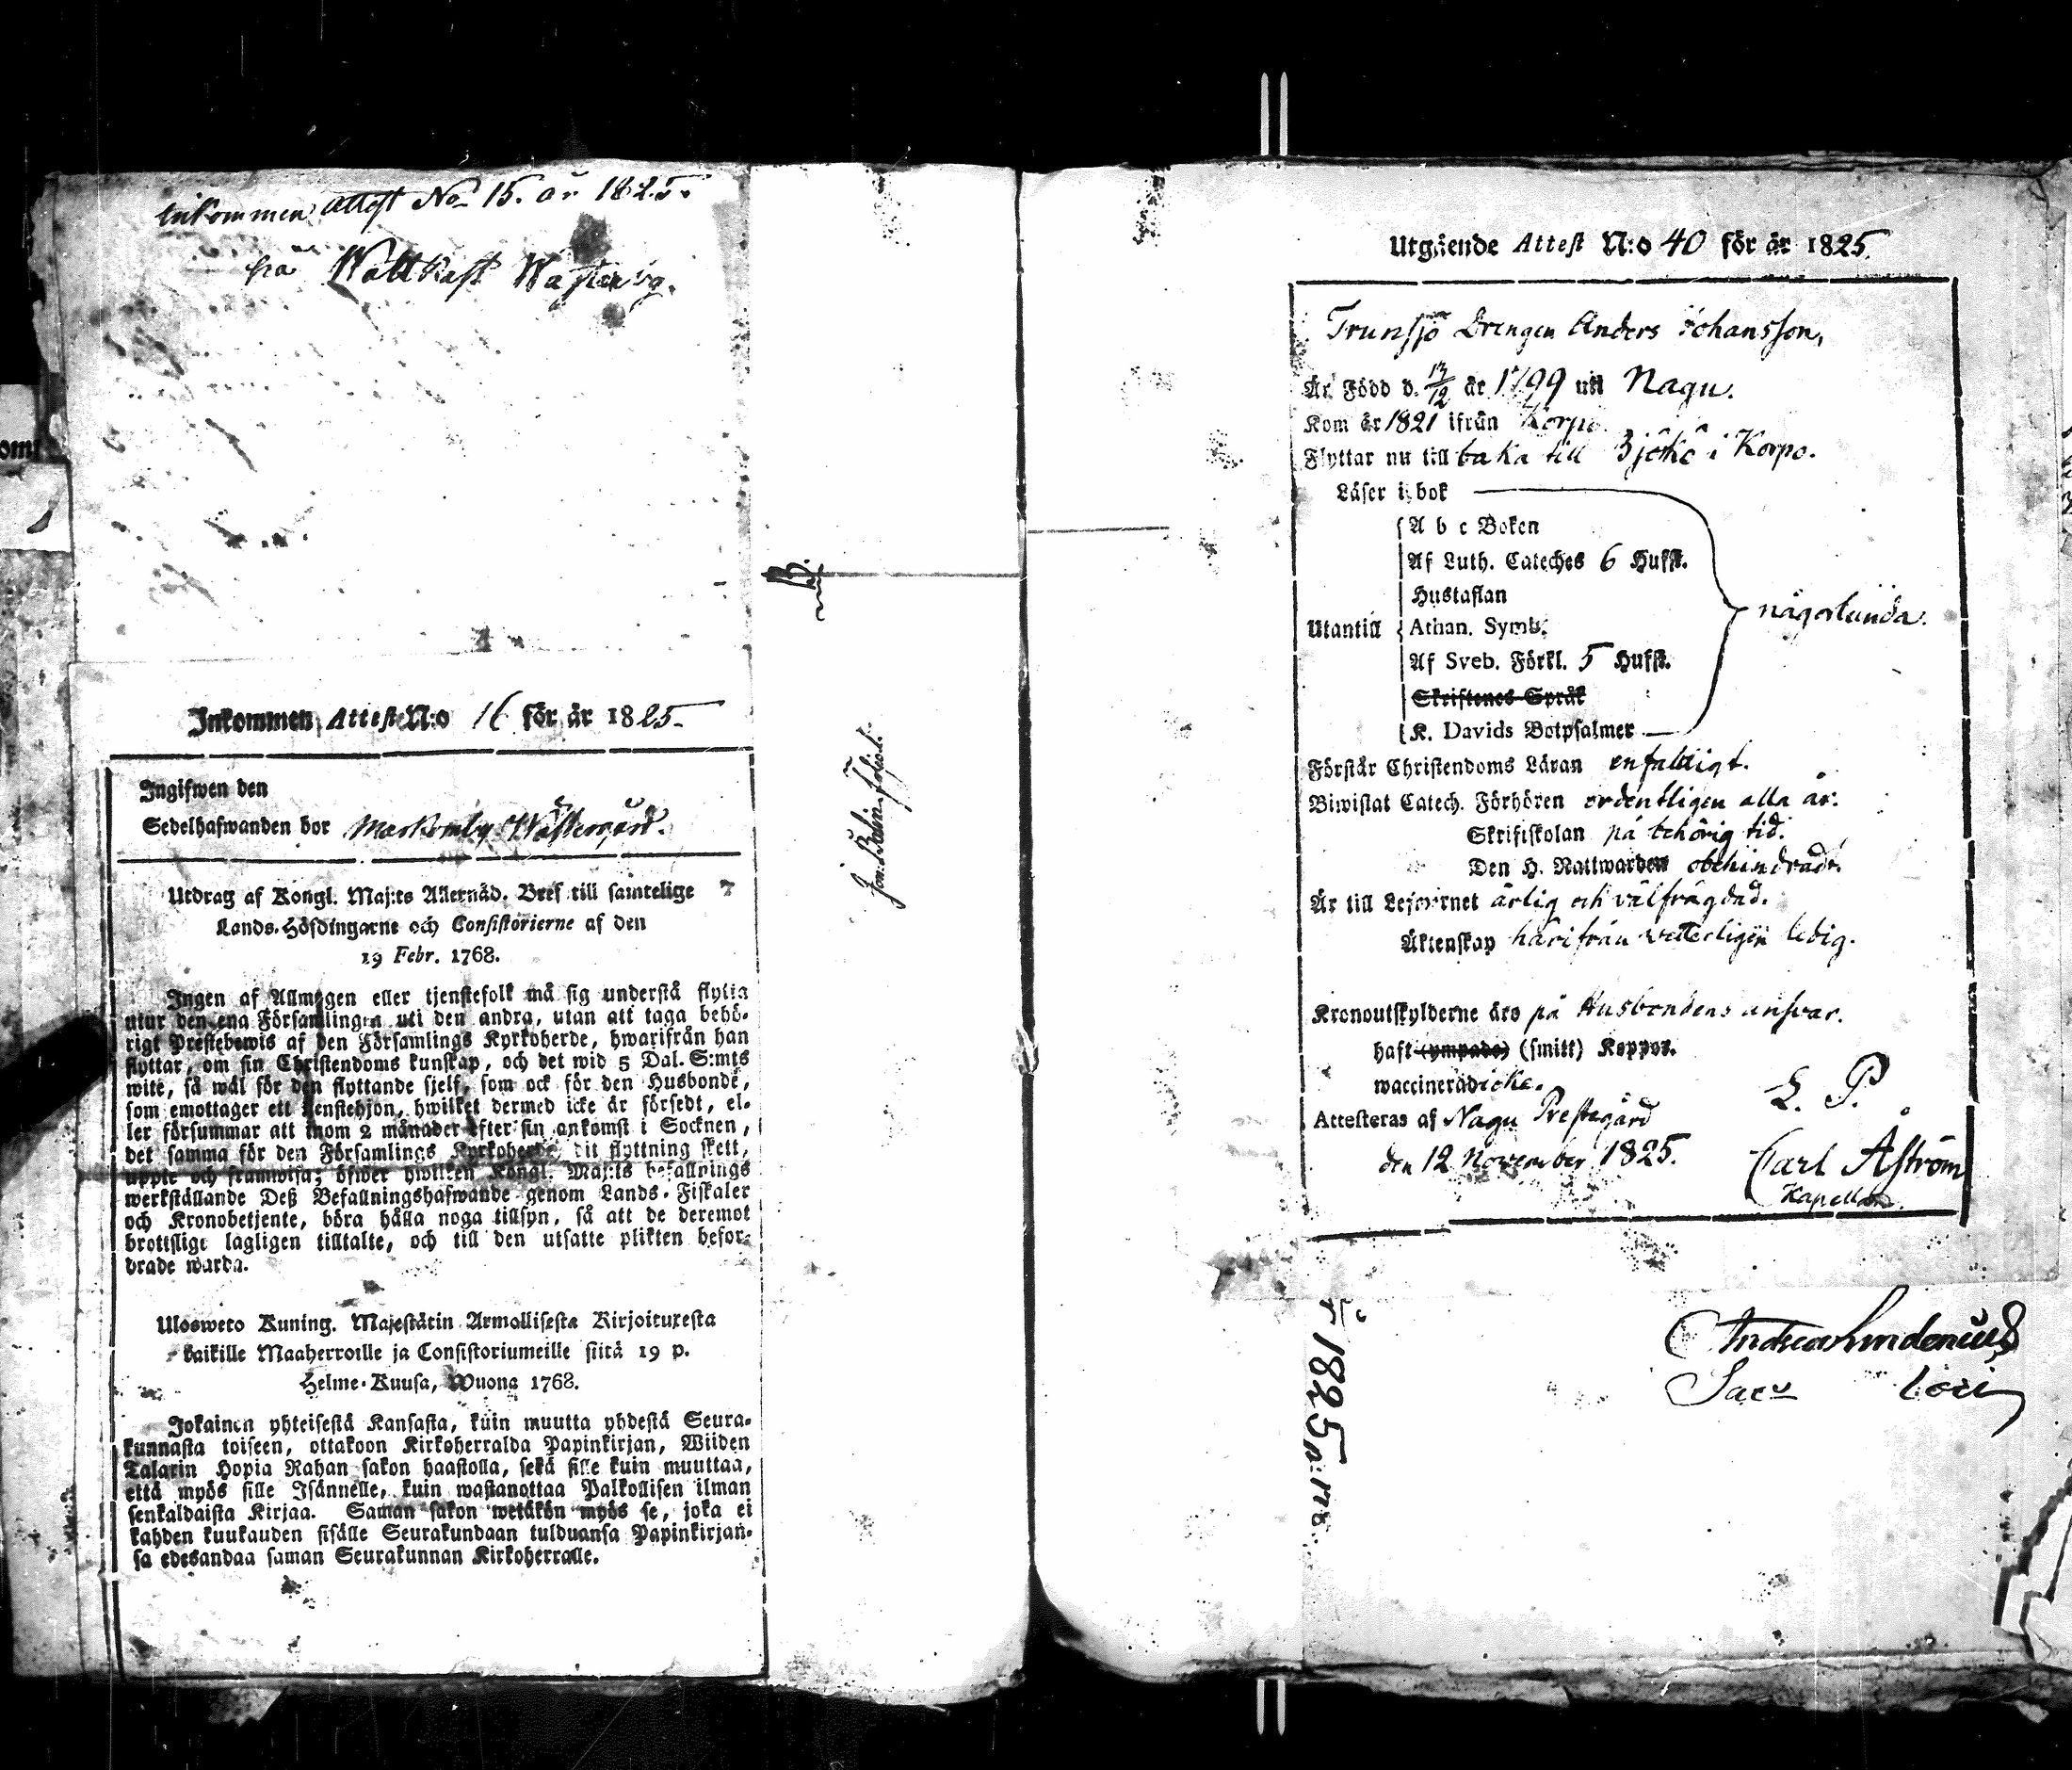 Inkommen attest No 15. år 1825.
frå Wattkast Wästerg.
Inkommen Attest N:o 16 för år 1825.
Ingifwen den
Sedelhafwanden bor Markomby Wästergård.
Utdrag af Kongl. Maj:ts Allernåd. Bref till samtelige
Lands-Höfdingarne och Consistorierne af den
19 Febr. 1768.
Ingen af Allmogen eller tjenstefolk må sig understå flytta
utur den ena Församlingen uti den andra, utan att taga behö-
rigt Prestebewis af den Församlings Kyrkoherde, hwarifrån han
flyttar, om sin Christendoms kunskap, och det wid 5 Dal. S:mts
wite, så wäl för den flyttande sjelf, som ock för den Husbonde,
som emottager ett tjenstehjon, hwilket dermed icke är försedt, el-
ler försummar att inom 2 månader efter sin ankomst i Socknen,
det samma för den Församlings Kyrkoherde, dit flyttning skett,
uppte och framwisa; öfwer hwilken Kongl. Maj:ts befallnings
werkställande Deß Befallningshafwande genom Lands-Fiskaler
och Kronobetjente, böra hålla noga tillsyn, så att de deremot
brottslige lagligen tilltalte, och till den utsatte plikten befor-
drade warda.
Ulosweto Kuning. Majestätin Armollisesta Kirjoituxesta
kaikille Maaherroille ja Consistoriumeille siitä 19 p.
Helme-Kuusa, Wuona 1768.
Jokainen yhteisestä Kansasta, kuin muutta yhdestä Seura-
kunnasta toiseen, ottakoon Kirkoherralda Papinkirjan, Wiiden
Talarin Hopia Rahan sakon haastolla, sekä sille kuin muuttaa,
että myös sille Isännelle, kuin wastanottaa Palkollisen ilman
senkaldaista Kirjaa. Saman sakon wetäkön myös se, joka ei
kahden kuukauden sisälle Seurakundaan tulduansa Papinkirjan-
sa edesandaa saman Seurakunnan Kirkoherralle.
Utgående Attest N:o 40 för år 1825.
Trunsjö Drengen Anders Johansson,
Är Född d. 13/12 år 1799 uti Nagu.
Kom år 1821 ifrån Korpo.
Flyttar nu till baka till Björkö i Korpo.
Läser i bok
A b c Boken
Af Luth. Cateches 6 Hufst.
Hustaflan
någorlunda.
Utantill Athan. Symb.
Af Sveb. Förkl. 5 Hufst.
Skriftenes Språk
K. Davids Botpsalmer
Förstår Christendoms Läran enfaldigt.
Biwistat Catech. Förhören ordentligen alla år.
Skriftskolan på behörig tid.
Den H. Nattwarden obehindradt.
Är till Lefwernet ärlig och välfrägdad.
Äktenskap härifrån vetterligen ledig.
Kronoutskylderne äro på Husbondens ansvar.
haft (ympade) (smitt) Koppor.
waccinerad icke.
L. P.
Attesteras af Nagu Prestegård
den 12 November 1825.
Carl Åström
Kapellan.
1825